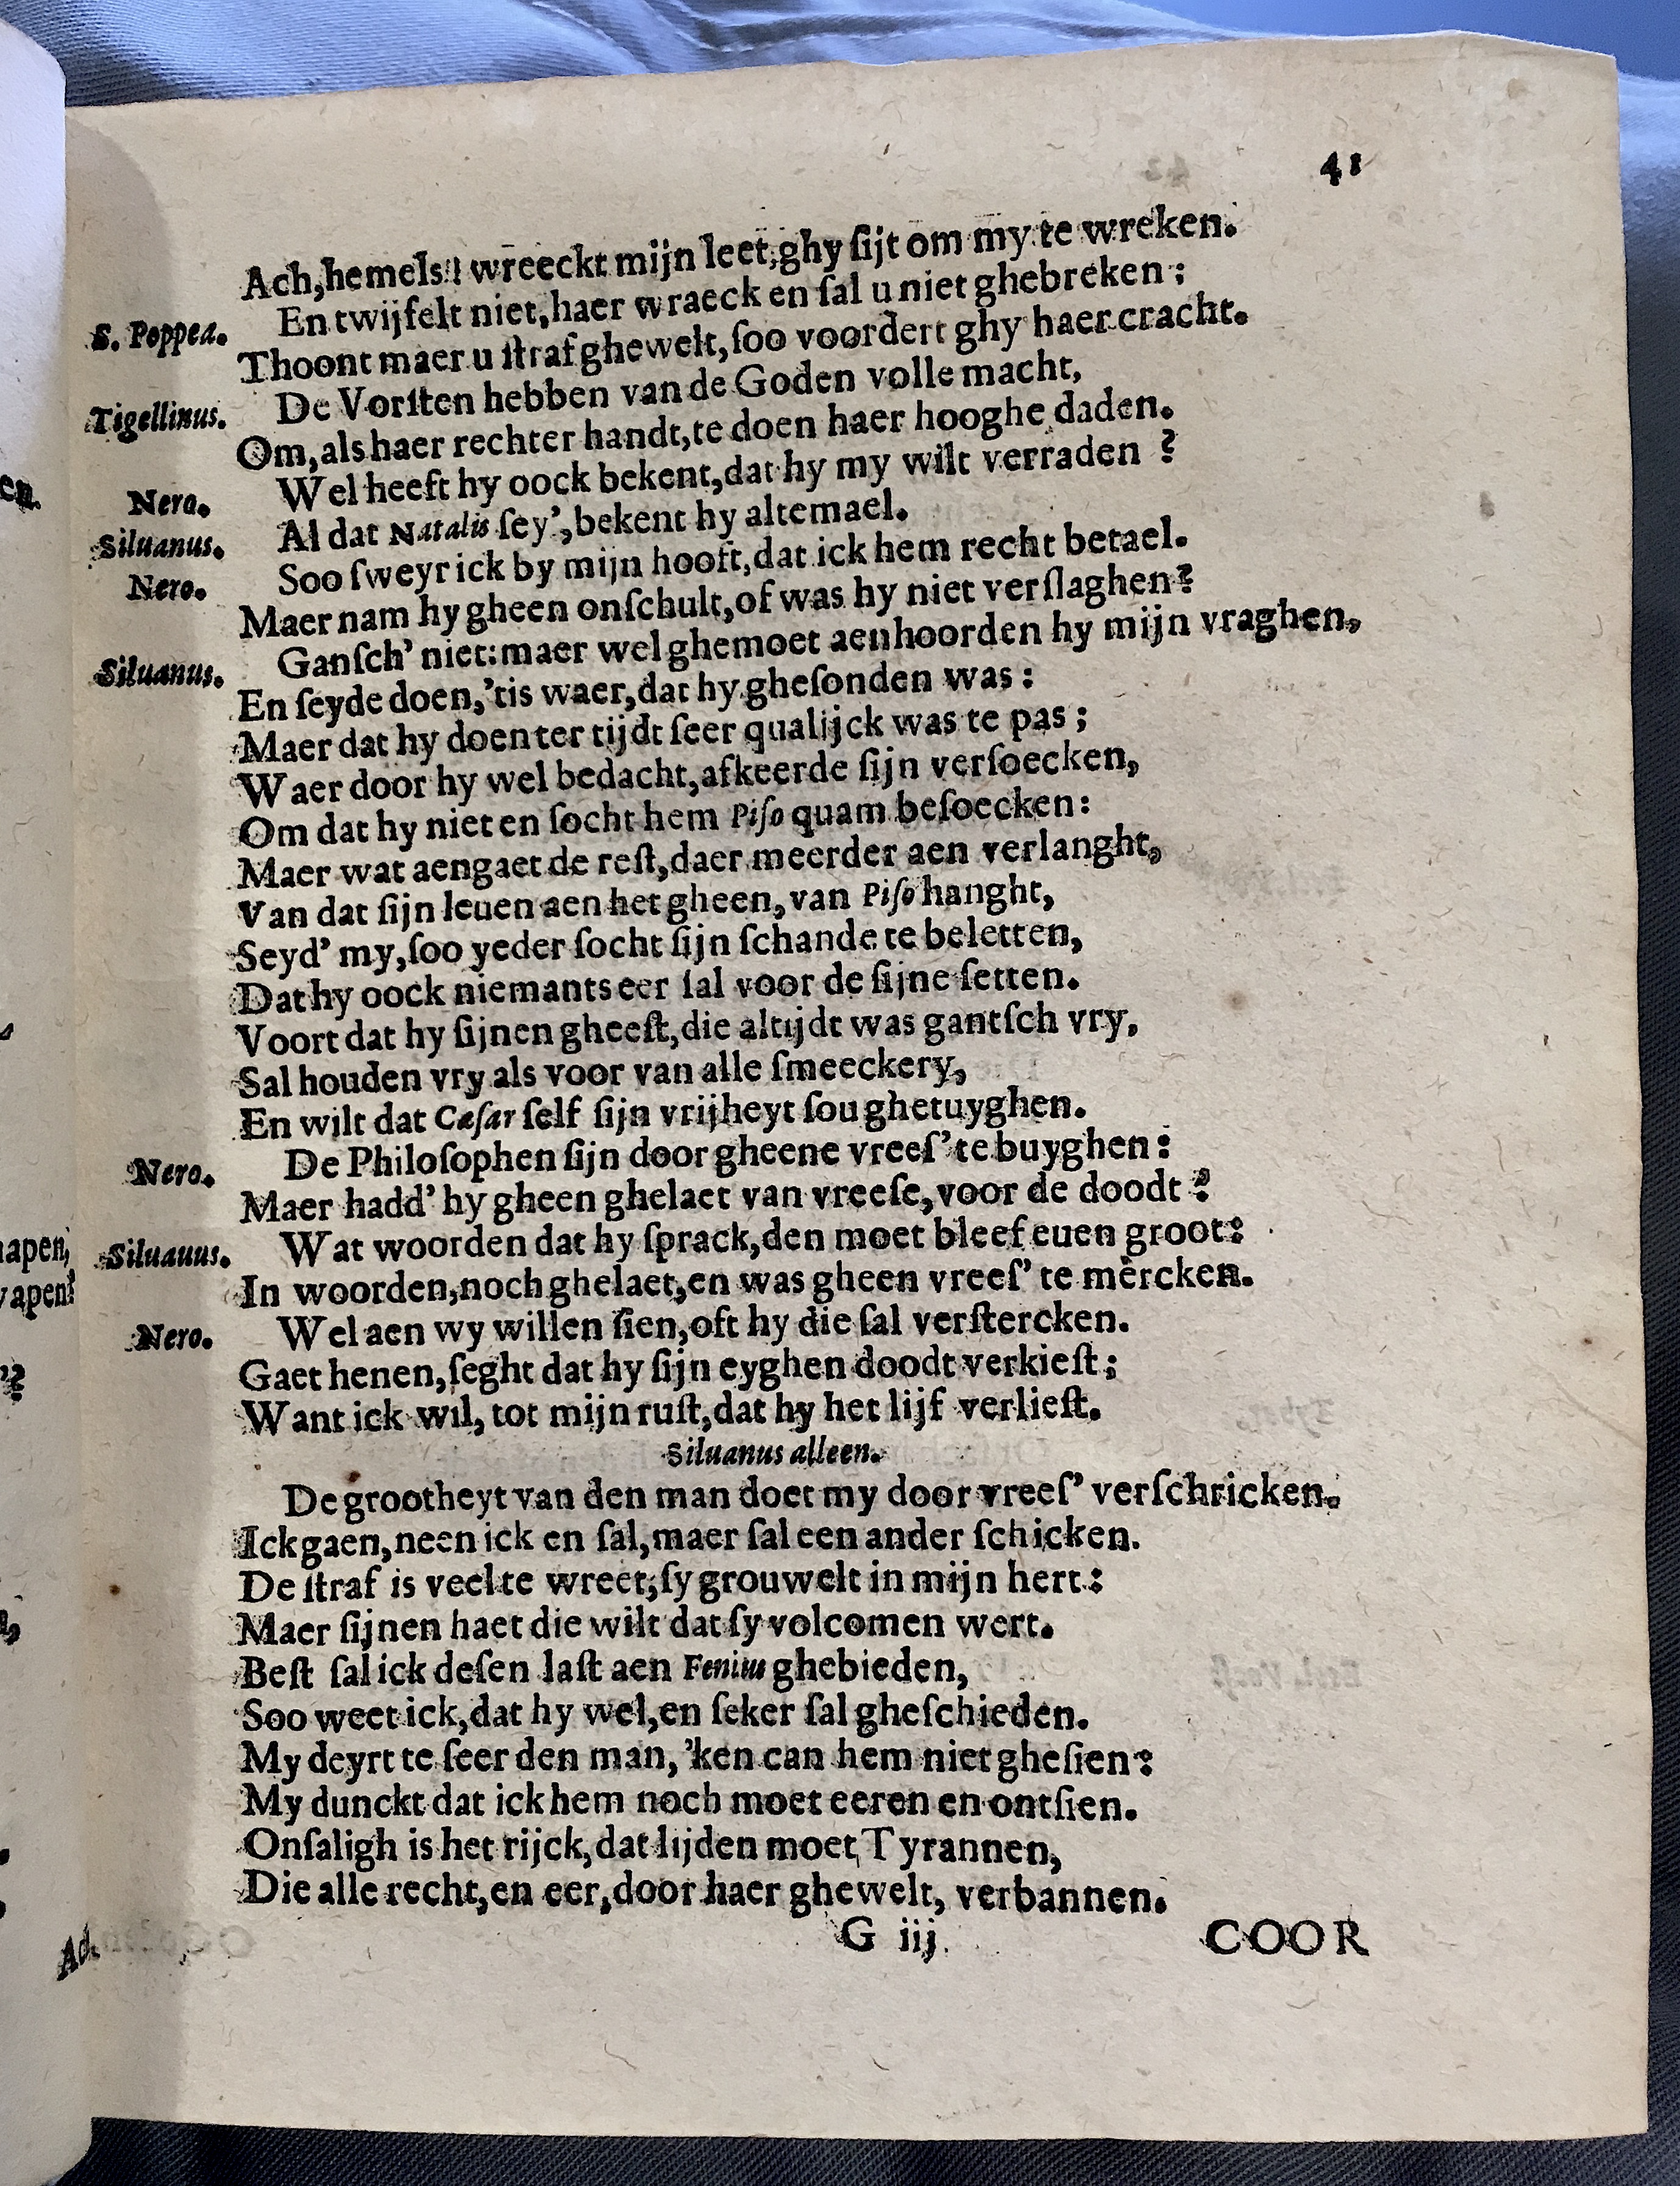 41
Ach, hemels!! wreeckt mijn leet, ghy ſijt om my te wreken.
S. Poppea. En twijfelt niet, haer wraeck en ſal u niet ghebreken:
Thoont maer u ſtraf ghewelt, ſoo voordert ghy haer cracht.
Tigellinus. De Vorſten hebben van de Goden volle macht,
Om, als haer rechter handt, te doen haer hooghe daden.
Nero. Wel heeft hy oock bekent, dat hy my wilt verraden?
Siluanus. Al dat Natalis ſey', bekent hy altemael.
Nero. Soo ſweyr ick by mijn hooft, dat ick hem recht betael.
Maer nam hy gheen onſchult, of was hy niet verſlaghen?
Siluanus. Ganſch' niet: maer wel ghemoet aenhoorden hy mijn vraghen,
En ſeyde doen, 'tis waer, dat hy gheſonden was:
Maer dat hy doen ter tijdt ſeer qualijck was te pas;
Waer door hy wel bedacht, afkeerde ſijn verſoecken,
Om dat hy niet en ſocht hem Piſo quam beſoecken:
Maer wat aengaet de reſt, daer meerder aen verlanght,
Van dat ſijn leuen aen het gheen, van Piſo hanght,
Seyd' my, ſoo yeder ſocht ſijn ſchande te beletten,
Dat hy oock niemants eer ſal voor de ſijne ſetten.
Voort dat hy ſijnen gheeſt, die altijdt was gantſch vry,
Sal houden vry als voor van alle ſmeeckery,
En wilt dat Cæſar ſelf ſijn vrijheyt ſou ghetuyghen.
Nero. De Philoſophen ſijn door gheene vreeſ' te buyghen:
Maer hadd' hy gheen ghelaet van vreeſe, voor de doodt?
Siluauus. Wat woorden dat hy ſprack, den moet bleef euen groot:
In woorden, noch ghelaet, en was gheen vreeſ' te mercken.
Nero. Wel aen wy willen ſien, oft hy die ſal verſtercken.
Gaet henen, ſeght dat hy ſijn eyghen doodt verkieſt;
Want ick wil, tot mijn ruſt, dat hy het lijf verlieſt.
Siluanus alleen.
De grootheyt van den man doet my door vreeſ' verſchricken.
Ick gaen, neen ick en ſal, maer ſal een ander ſchicken.
De ſtraf is veel te wreet, ſy grouwelt in mijn hert:
Maer ſijnen haet die wilt dat ſy volcomen wert.
Beſt ſal ick deſen laſt aen Fenius ghebieden,
Soo weet ick, dat hy wel, en ſeker ſal gheſchieden.
My deyrt te ſeer den man, 'ken can hem niet gheſien:
My dunckt dat ick hem noch moet eeren en ontſien.
Onſaligh is het rijck, dat lijden moet Tyrannen,
Die alle recht, en eer, door haer ghewelt, verbannen.
G iij COOR